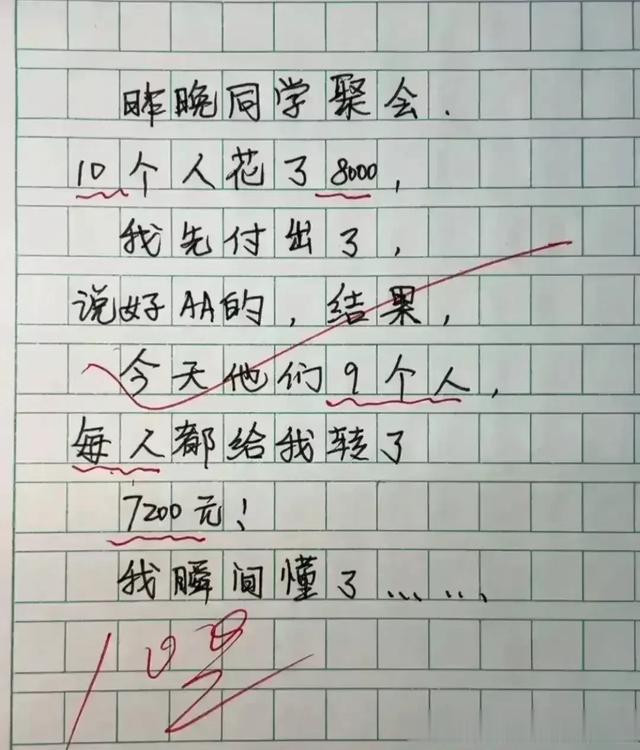 昨晚同学聚会.
10个人花了8000,
我先付出了,
说好AA的,结果,
今天他们9个人,
每人都给我转了
7200元!
我瞬间懂了……
100